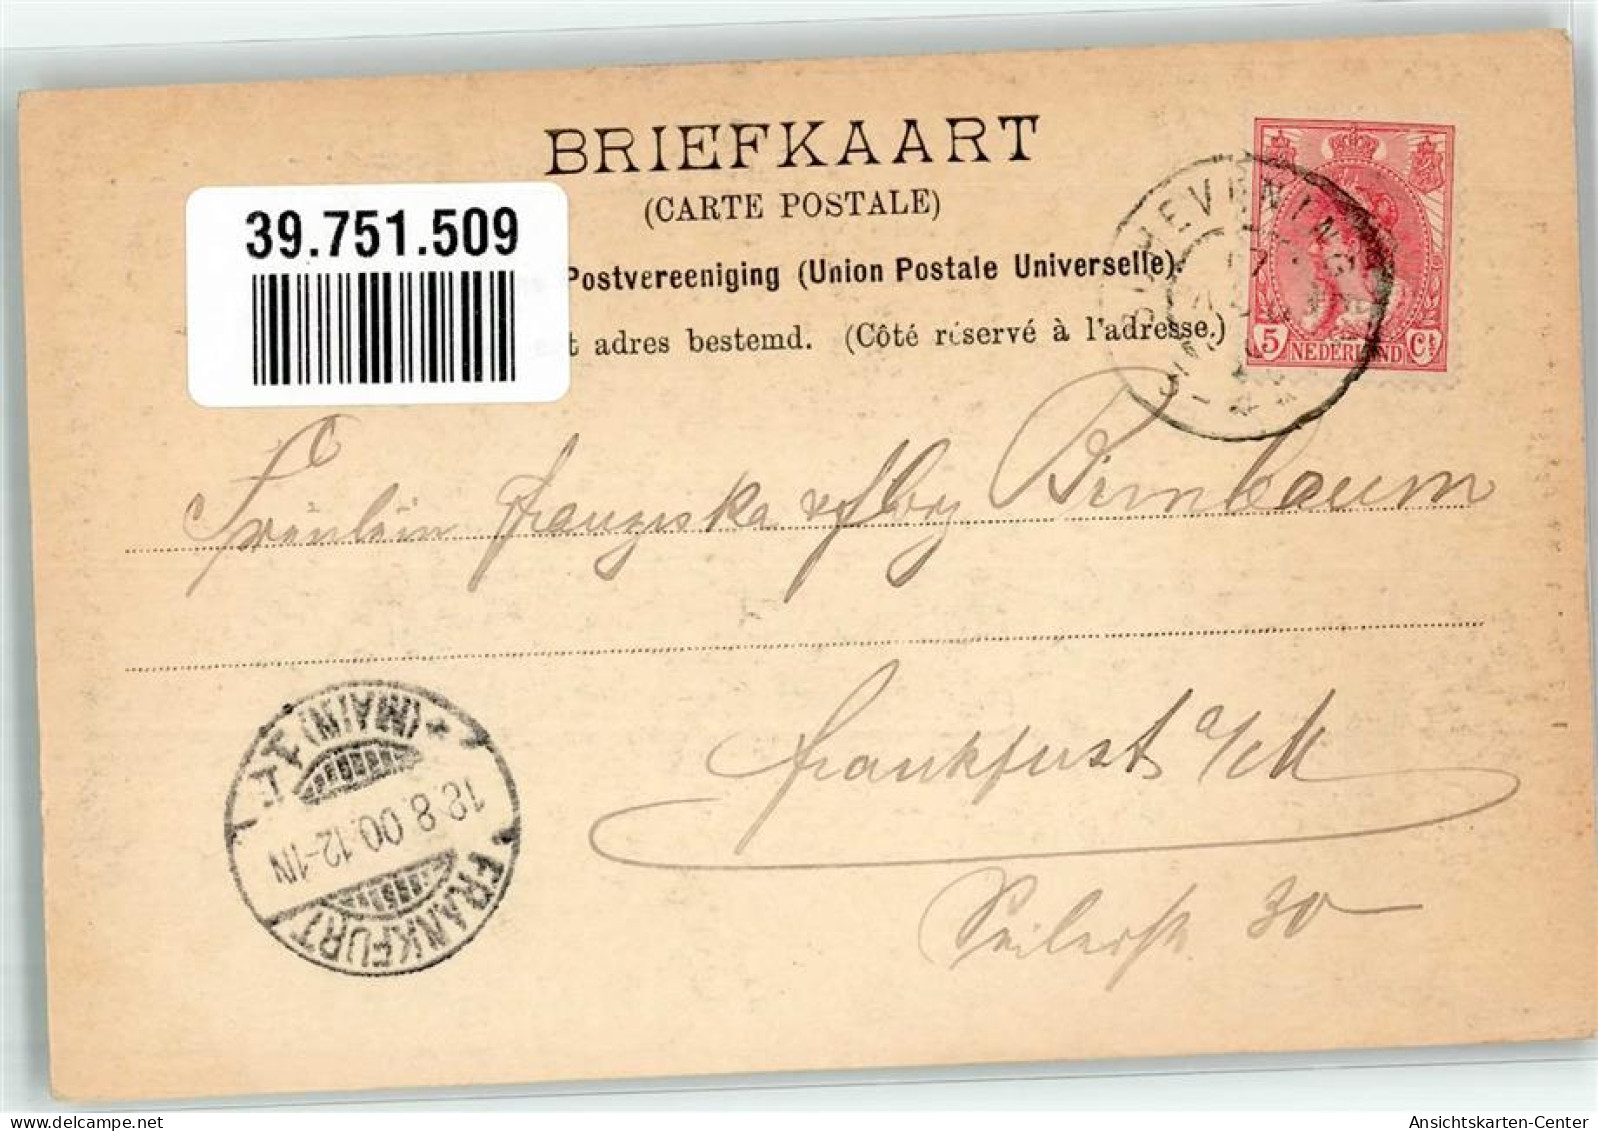 BRIEFKAART
(CARTE POSTALE)
39.751.509
Postvereeniging (Union Postale Universelle).
t adres bestemd. (Côté réservé à l'adresse.)
SCHEVENINGEN
5 NEDERLAND Ct
Fräulein Franziska Birnbaum
Frankfurt a/M
Seilerstr 30
FRANKFURT (MAIN) 1
18.8.00.12-1N
Ansichtskarten-Center